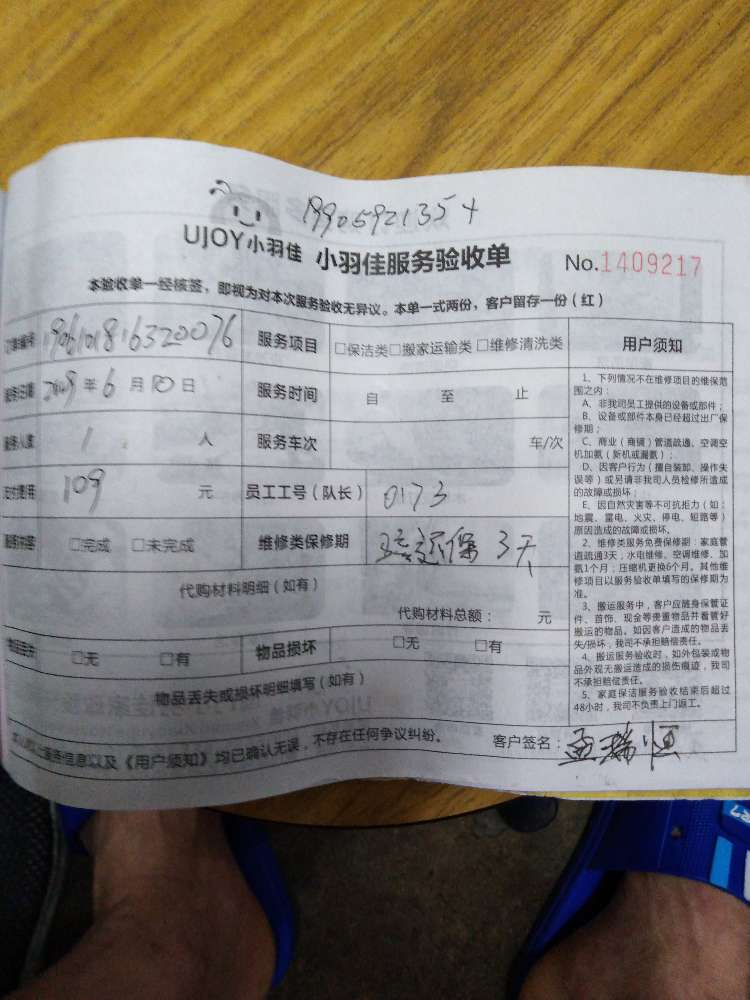 19905921354
UJOY小羽佳 小羽佳服务验收单 No.1409217
本验收单一经核签，即视为对本次服务验收无异议。本单一式两份，客户留存一份（红）
订单编号 1906101816320076 服务项目 □保洁类□搬家运输类□维修清洗类
服务日期 2019年6月10日 服务时间 自 至 止
服务人数 1 人 服务车次 车/次
支付费用 109 元 员工工号（队长） 0173
□完成 □未完成 维修类保修期 保 3天
代购材料明细（如有）
代购材料总额： 元
□无 □有 物品损坏 □无 □有
物品丢失或损坏明细填写（如有）
服务信息以及《用户须知》均已确认无误，不存在任何争议纠纷。 客户签名： 孟瑞恒
用户须知
1、下列情况不在维修项目的维保范
围之内：
A、非我司员工提供的设备或部件；
B、设备或部件本身已经超过出厂保
修期；
C、商业（商铺）管道疏通、空调空
机加氨（新机或漏氨）；
D、因客户行为（擅自装卸、操作失
误等）或另请非我司人员检修所造成
的故障或损坏；
E、因自然灾害等不可抗拒力（如：
地震、雷电、火灾、停电、短路等）
原因造成的故障或损坏。
2、维修类服务免费保修期：家庭管
道疏通3天，水电维修、空调维修、加
氨1个月；压缩机更换6个月。其他维
修项目以服务验收单填写的保修期为
准。
3、搬运服务中，客户应随身保管证
件、首饰、现金等贵重物品并看管好
搬运的物品。如因客户造成的物品丢
失/损坏，我司不承担赔偿责任。
4、搬运服务验收时，如外包装或物
品外观无搬运造成的损伤痕迹，我司
不承担赔偿责任。
5、家庭保洁服务验收结束后超过
48小时，我司不负责上门返工。